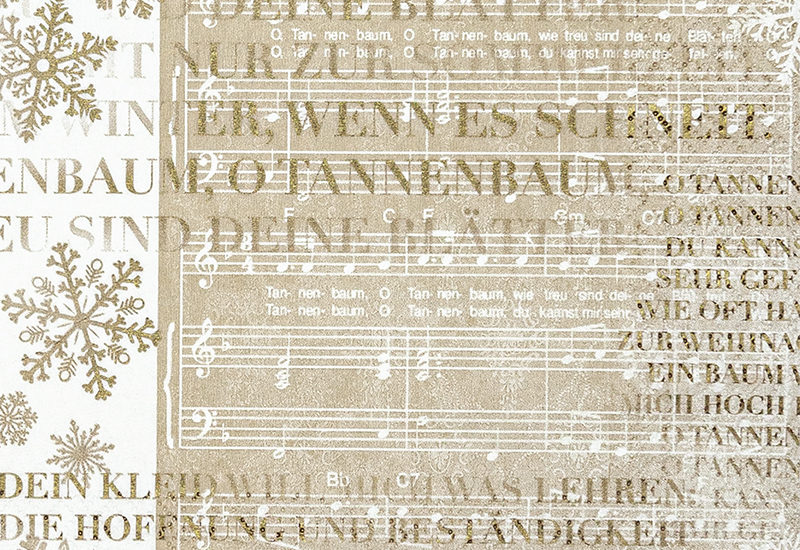 SIND DEINE BLÄTTER
O Tan- nen- baum, O Tan- nen- baum, wie treu sind dei- ne Blät- ter
O Tan- nen- baum, O Tan- nen- baum, du kannst mir sehr
NUR ZUR
WINTER, WENN ES SCHNEIT.
ENBAUM, O TANNENBAUM,
O TANNEN
F C F Gm C7
O TANNEN
EU SIND DEINE BLÄTTER
DU KANNS
SEHR GEF
Tan- nen- baum, O Tan- nen- baum, wie treu sind dei- ne
Tan- nen- baum, O Tan- nen- baum, du kannst mir sehr
WIE OFT HA
ZUR WEIHNAC
EIN BAUM V
MICH HOCH
O TANNEN
O TANNEN
Bb C7 F
DEIN KLEID WILL MICH WAS LEHREN:
KANN
DIE HOFFNUNG UND BESTÄNDIGKEIT